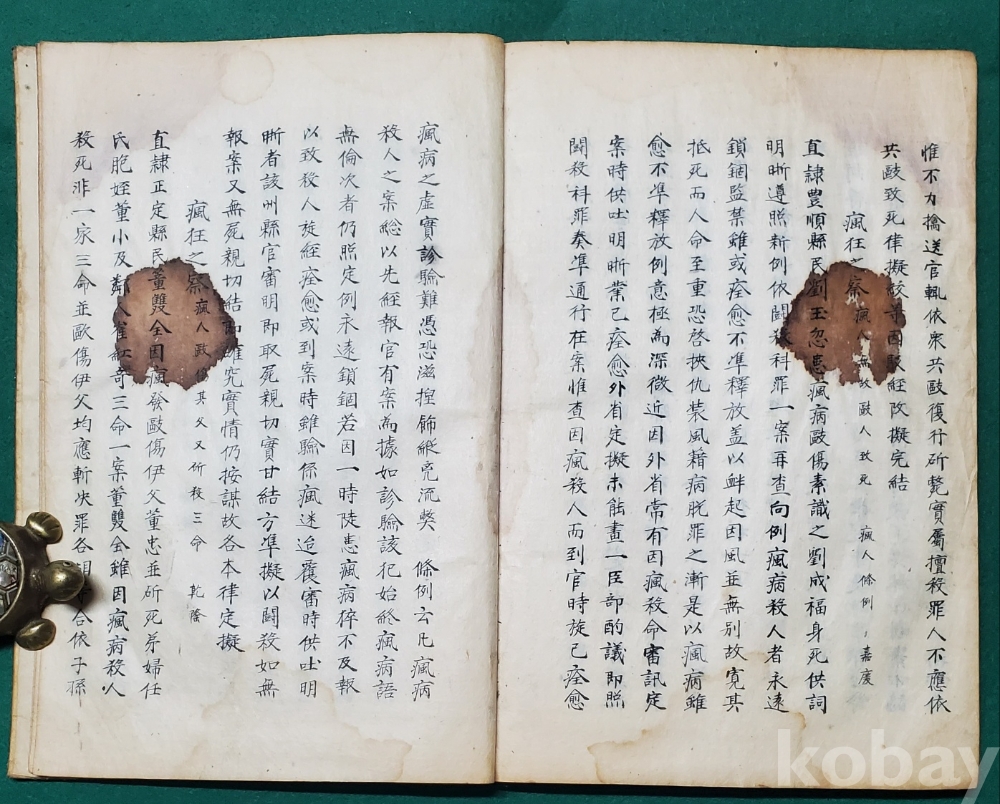 惟不力擒送官輒依衆共毆復行斫斃實屬擅殺罪人不應依
共毆致死律擬絞 駁經改擬完結
瘋狂之 瘋人無故毆人致死 瘋人條例 嘉慶
直隷豊順縣民劉玉忽患瘋病毆傷素識之劉成福身死供詞
明晰遵照新例依鬪殺科罪一案再查向例瘋病殺人者永遠
鎖錮監禁雖或痊愈不準釋放盖以衅起因風並無別故寬其
抵死而人命至重恐啓挾仇裝風藉病脫罪之漸是以瘋病雖
愈不準釋放例意極為深微近因外省常有因瘋殺命審訊定
案時供吐明晰業已痊愈外省定擬未能畫一臣部酌議即照
鬪殺科罪奏準通行在案惟查因瘋殺人而到官時旋已痊愈
瘋病之虛實診驗難憑恐滋捏飾縱兇流獘 條例云凡瘋病
殺人之案総以先經報官有案為據如診驗該犯始終瘋病語
無倫次者仍照定例永遠鎖錮若因一時陡患瘋病猝不及報
以致殺人旋經痊愈或到案時雖驗係瘋迷迨覆審時供吐明
晰者該州縣官審明即取屍親切實甘結方準擬以鬪殺如無
報案又無屍親切結即確究實情仍按謀故各本律定擬
瘋狂之 瘋人毆傷其父又斫殺三命 乾隆
直隷正定縣民董雙全因瘋發毆傷伊父董忠並斫死弟婦任
氏胞姪董小及鄰人崔紅奇三命一案董雙全雖因瘋病殺人
殺死非一家三命並毆傷伊父均應斬决罪各相 合依子孫
kobay